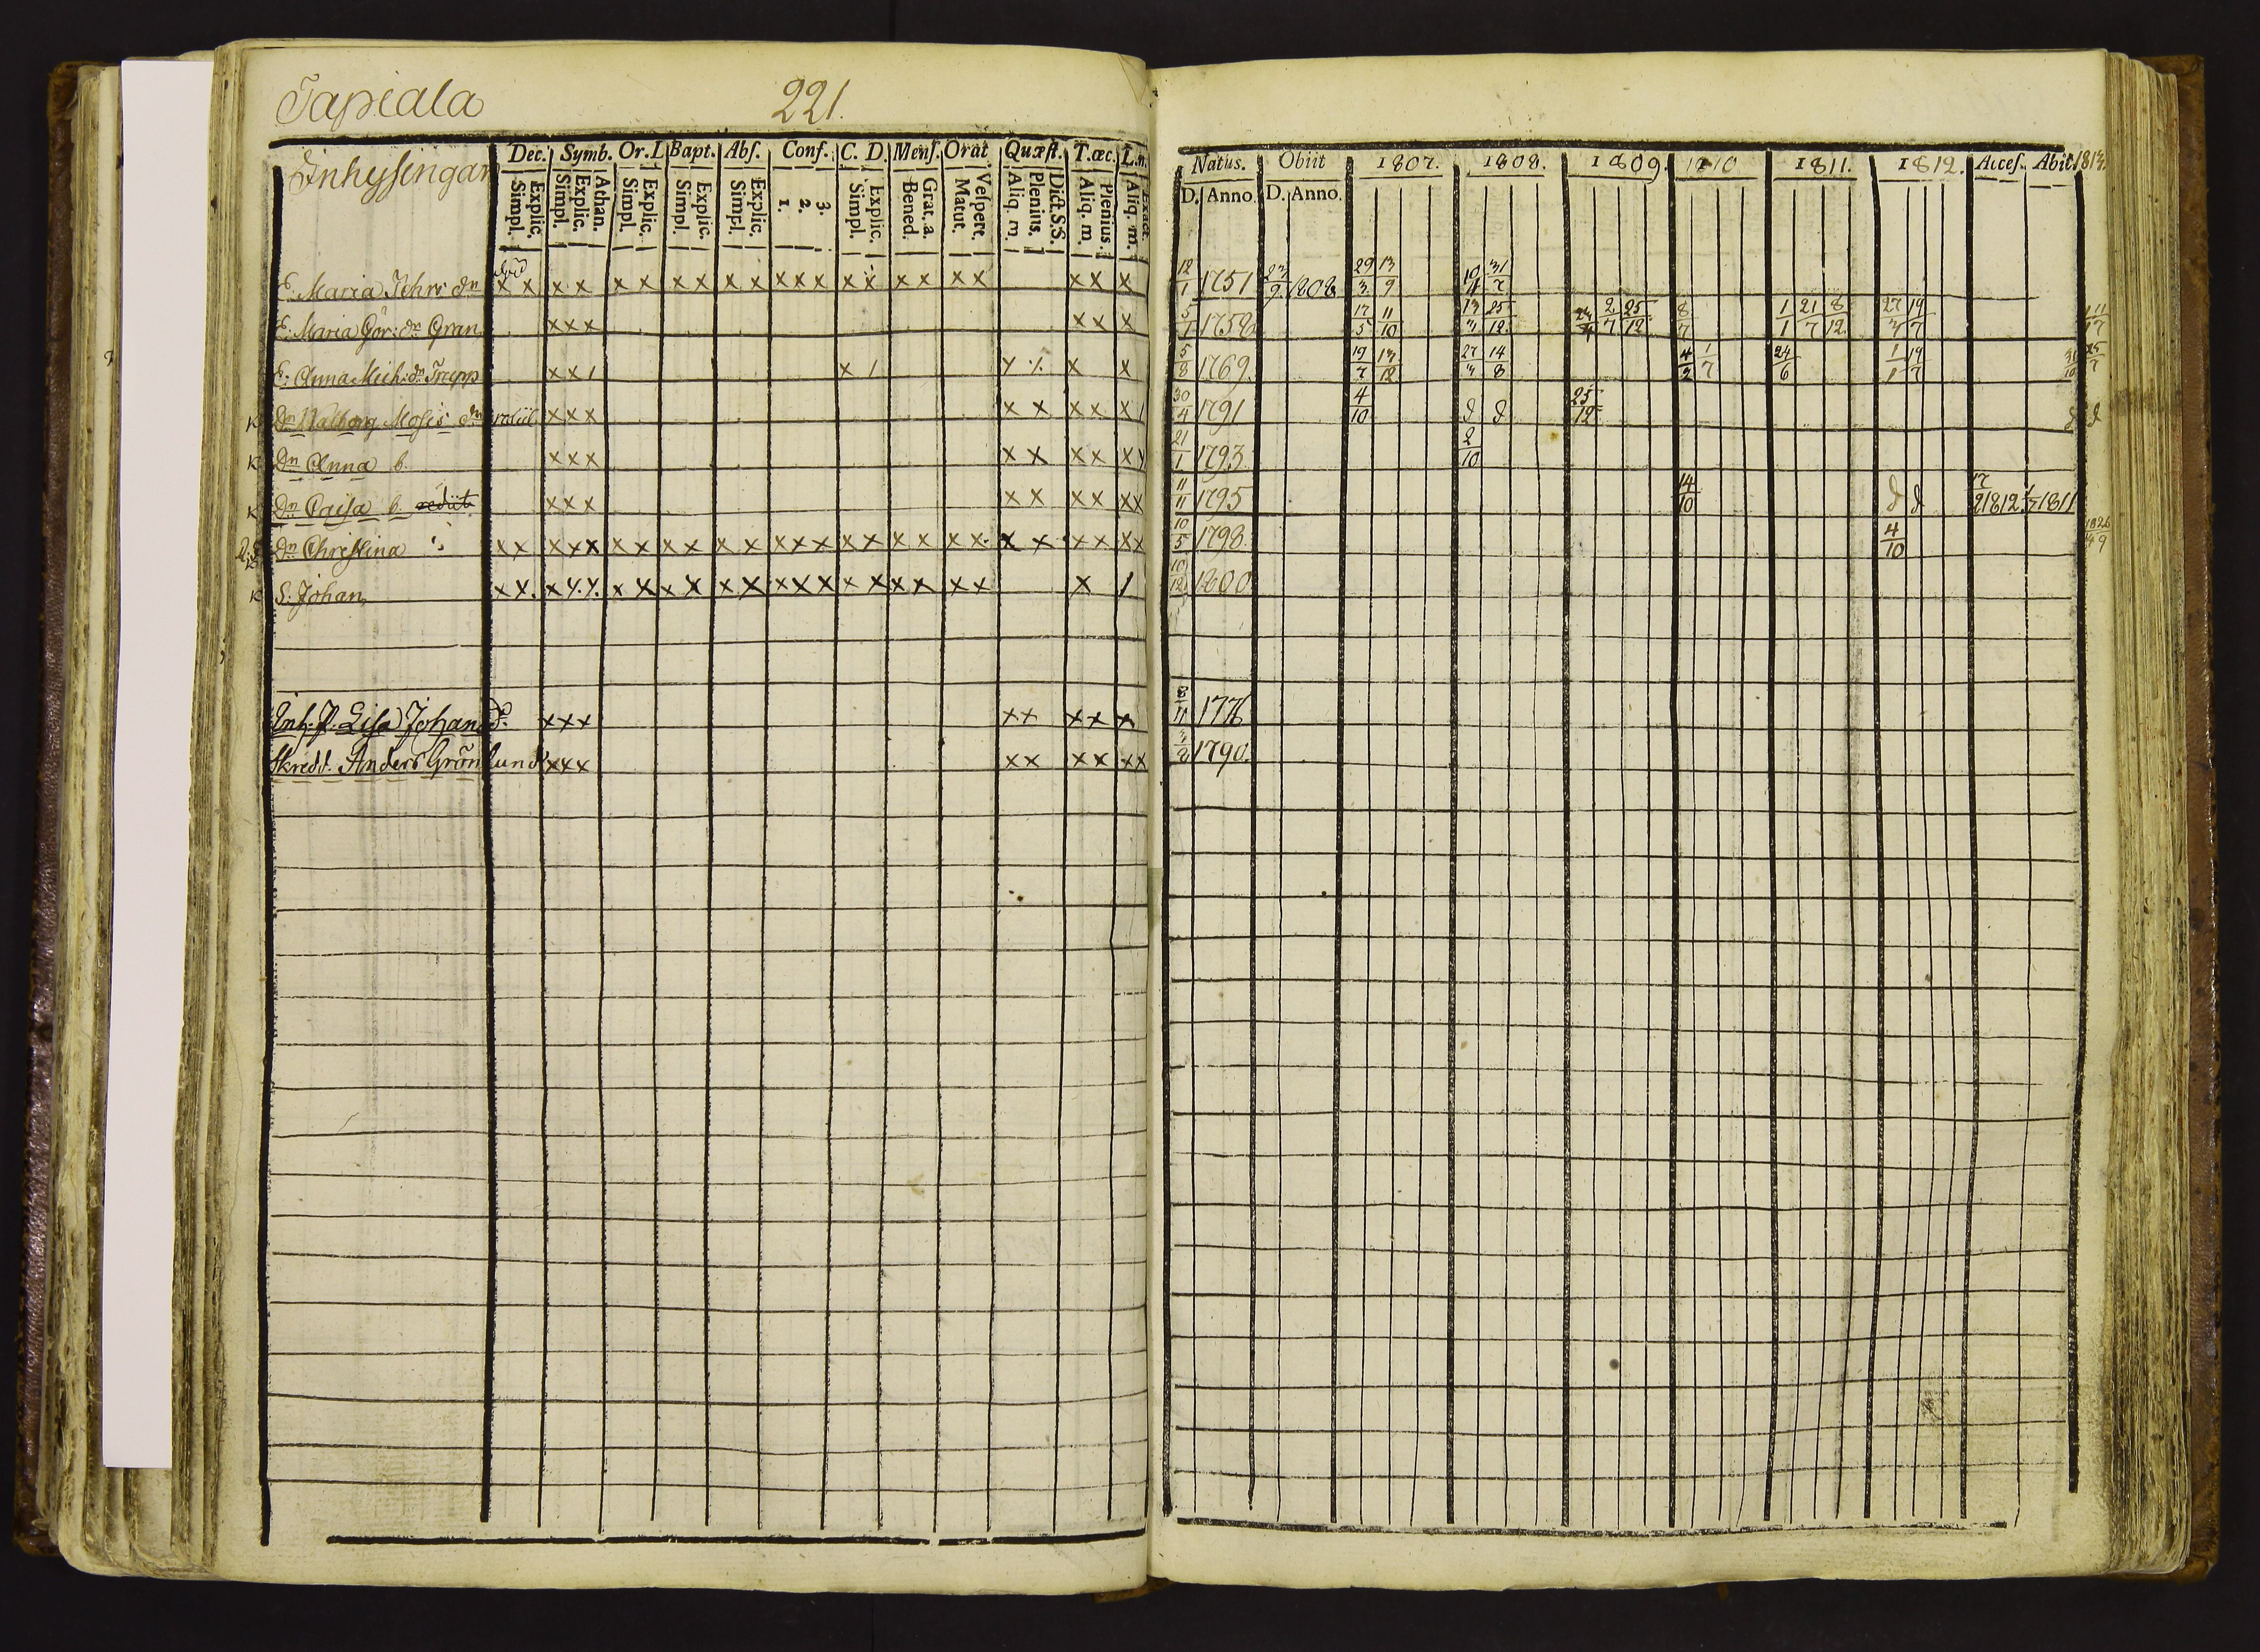 Tapiala 221.
Inhysingar Dec. Symb. Or. D Bapt. Abs. Conf. C. D. Mens. Orat. Quæst. T. œc. L. m.
Simpl. Explic. Simpl. Explic. Athan. Simpl. Explic. Simpl. Explic. Simpl. Explic. 1. 2. 3. Simpl. Explic. Bened. Grat. a. Matut. Vespere. Aliq. m. Plenius. Dict. S.S. Aliq. m Plenius. Aliq. m. Exact.
Natus. Obiit 1807. 1808. 1809. 1810 1811. 1812. Acces. Abiit. 1813.
D. Anno D. Anno.
E. Maria Johr: dr x x x x x x x x x x x x x x x x x x x x x x 12/1 1751 23/9 1808 29/3 13/9 10/4 31/7
E: Maria Gör: dr Gran x x x x x x 5/1 1758 17/5 11/10 13/3 25/12 23/4 2/7 25/12 8/7 1/1 21/7 8/12 27/3 19/7 11/7
E: Anna Mich: dr Trepp x x / x / x x 5/8 1769. 19/7 13/12 27/3 14/8 4/2 1/7 24/6 1/1 19/7 31/10 25/7
K Dr Walborg Mosis dr x x x x x x x x / 30/4 1791 4/10 d d 25/12 d d
K Dr Anna b. x x x x x x x x x 21/1 1793 2/10
K Dr Caisa b. rediit x x x x x x x x x 11/11 1795 14/10 d d 1812 1811
Dr Christina x x x x x x x x x x x x x x x x x x x x x x x x x x x 10/5 1798. 4/10 1826
K S: Johan x x. x x x x x x x x x x x x x x x x x x x x / 10/12 1800.
Enk. P. Lisa Johansd. x x x x x x x x 8/11 1776
Skredd. Anders Grönlund x x x x x x x x x 3/8 1790.